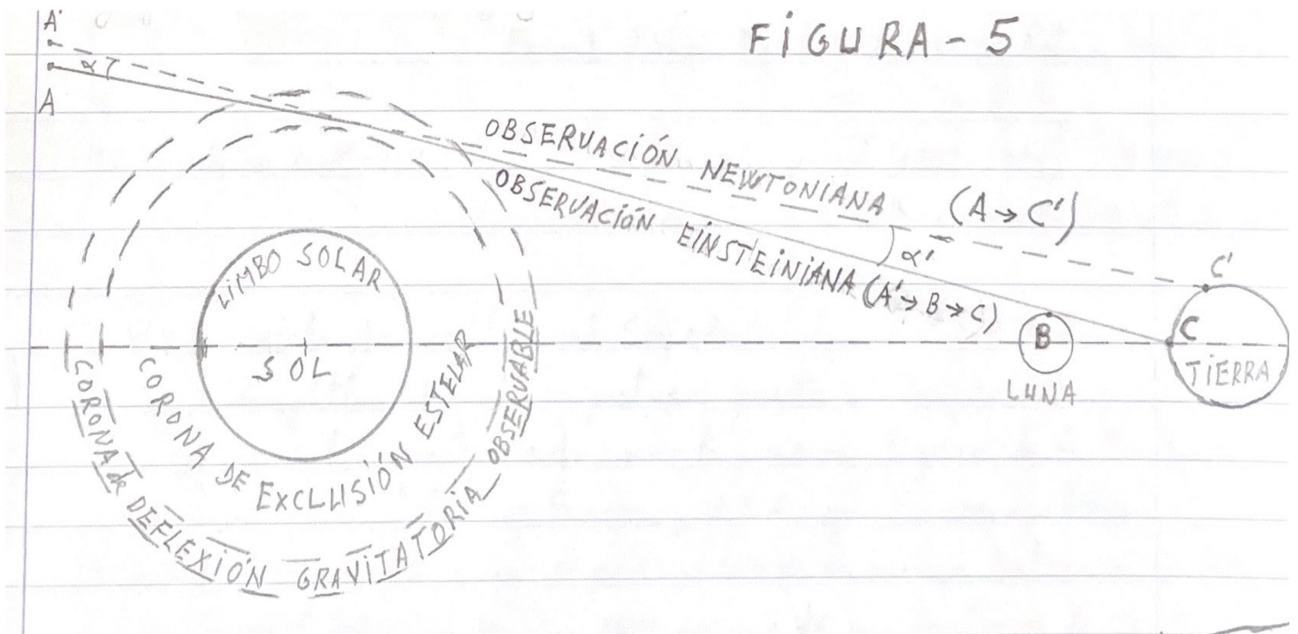 FIGURA-5
A'
α
A
OBSERVACIÓN NEWTONIANA (A→C')
OBSERVACIÓN EINSTEINIANA (A'→B→C)
α'
C'
LIMBO SOLAR
SOL
B
C
TIERRA
LUNA
CORONA DE EXCLUSIÓN ESTELAR
CORONA de DEFLEXIÓN GRAVITATORIA OBSERVABLE